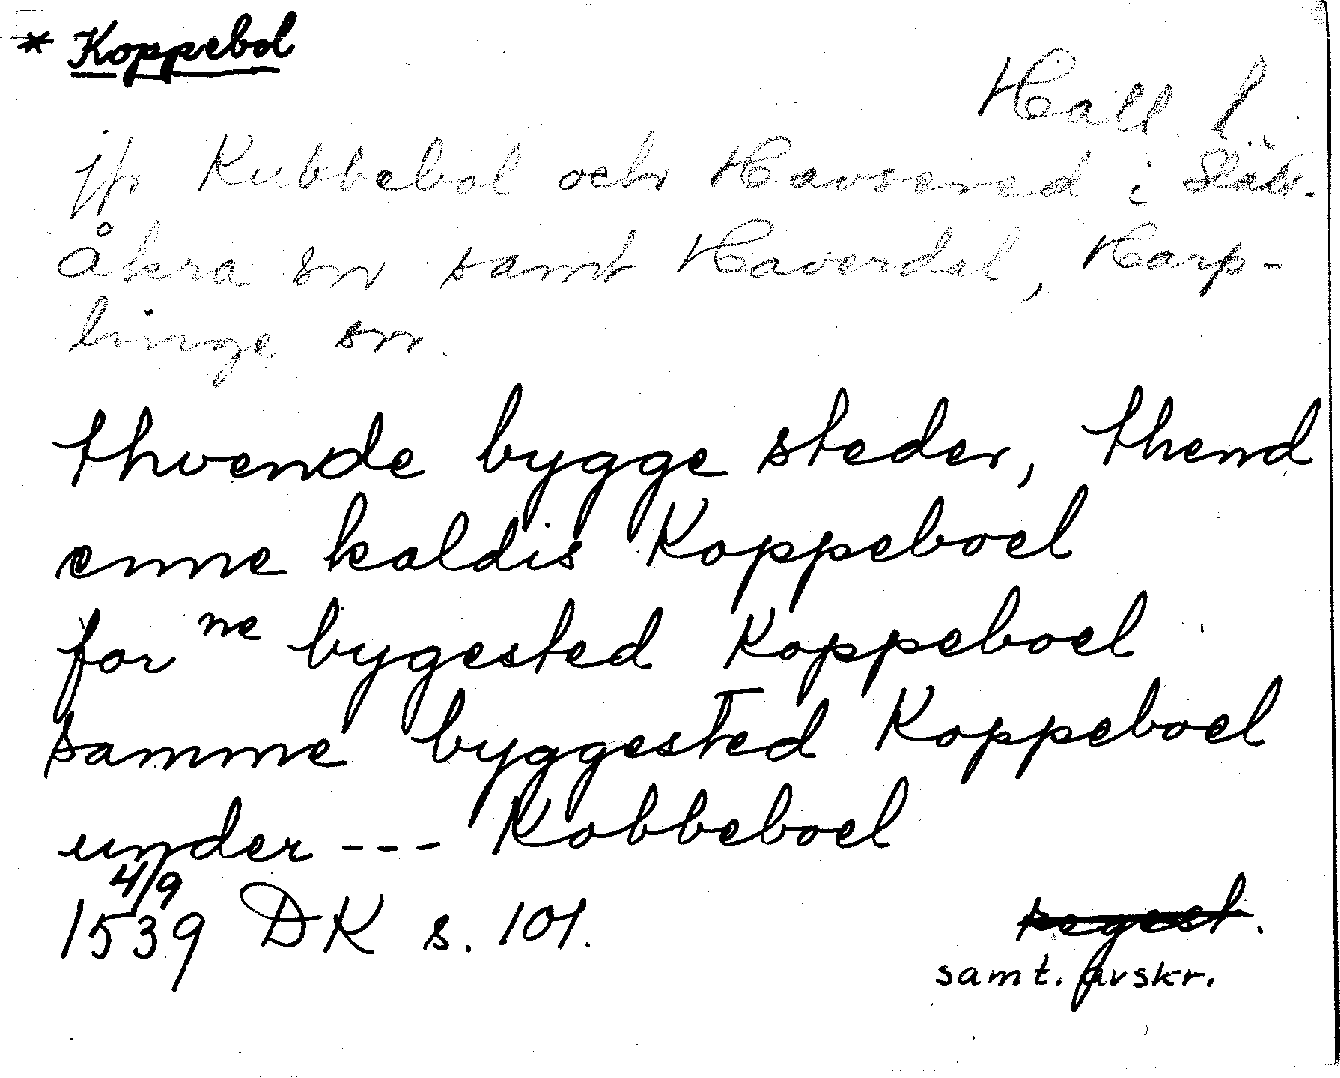 * Koppebol
Hall l.
jfr Kubbebol och Havsered i Slät-
åkra sn samt Haverdal, Harp-
linge sn.
thvende bygge steder, thend
enne kaldis Koppeboel
for ne bygested Koppeboel
samme byggested Koppeboel
under --- Kobbeboel
4/9
1539 DK s. 101.
regest.
samt. avskr.